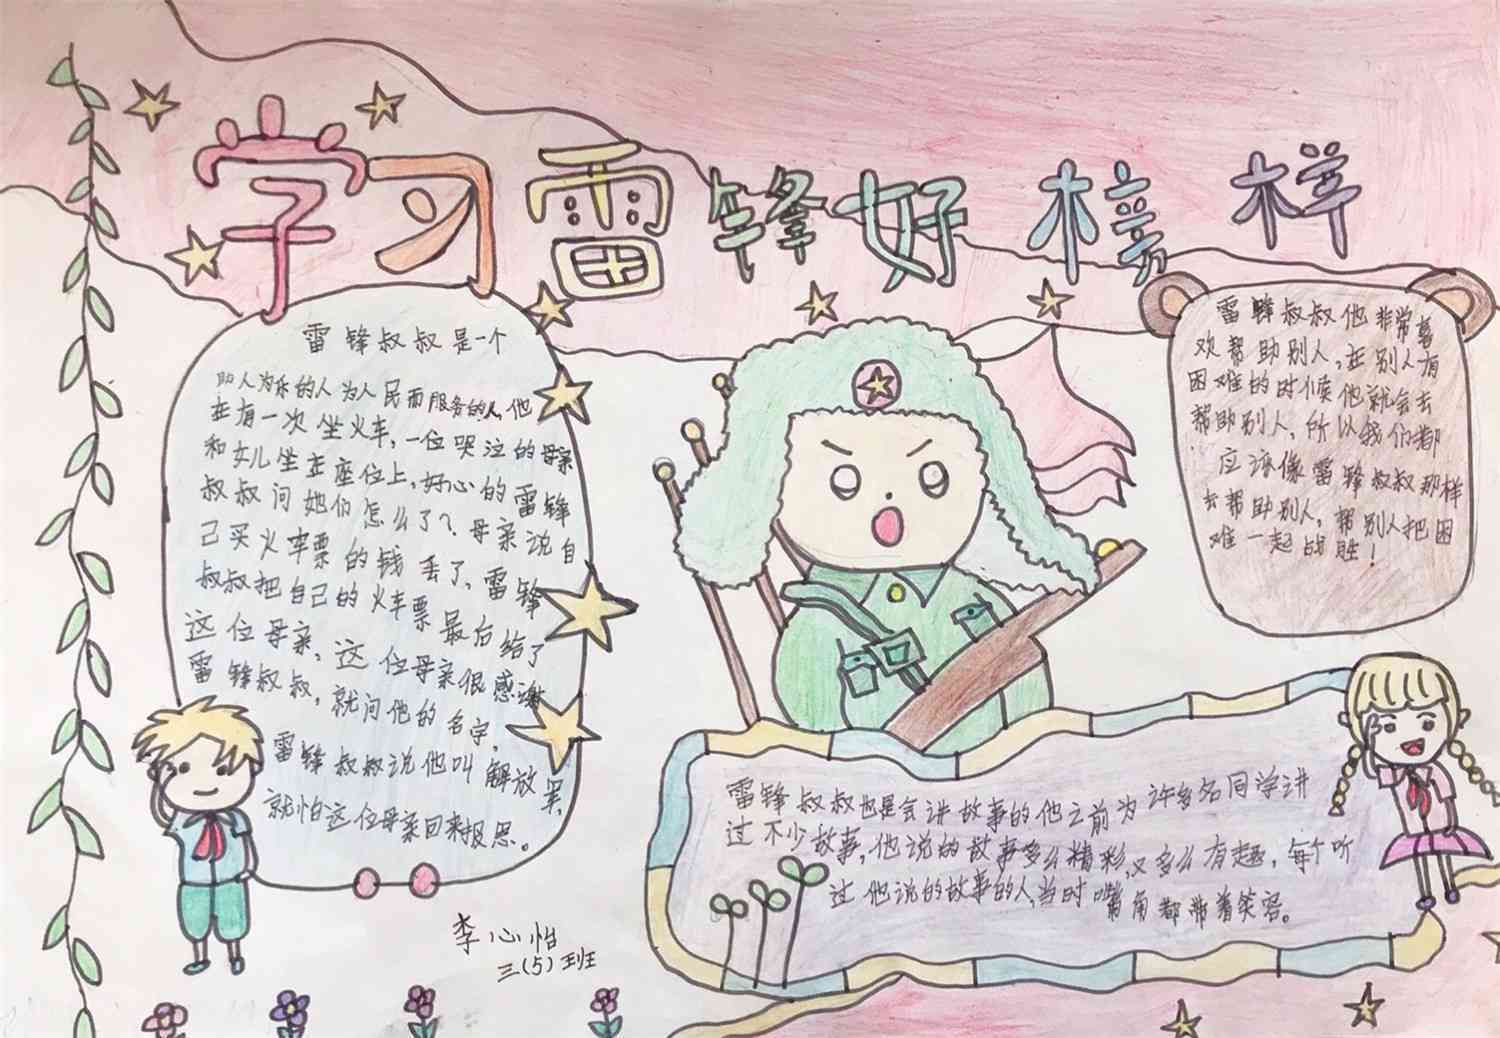 学习雷锋好榜样
雷锋叔叔是一个
助人为乐的人为人民而服务的人,他
在有一次坐火车,一位哭泣的母亲
和女儿坐在座位上,好心的雷锋
叔叔问她们怎么了?母亲说自
己买火车票的钱丢了,雷锋
叔叔把自己的火车票最后给了
这位母亲,这位母亲很感谢
雷锋叔叔,就问他的名字,
雷锋叔叔说他叫解放军,
就怕这位母亲回来报恩。
李心怡
三(5)班
雷锋叔叔他非常喜
欢帮助别人,在别人有
困难的时候他就会去
帮助别人,所以我们都
应该像雷锋叔叔那样
去帮助别人,帮别人把困
难一起战胜!
雷锋叔叔也是会讲故事的他之前为许多名同学讲
过不少故事,他说的故事多么精彩,又多么有趣,每个听
过他说的故事的人,当时嘴角都带着笑容。